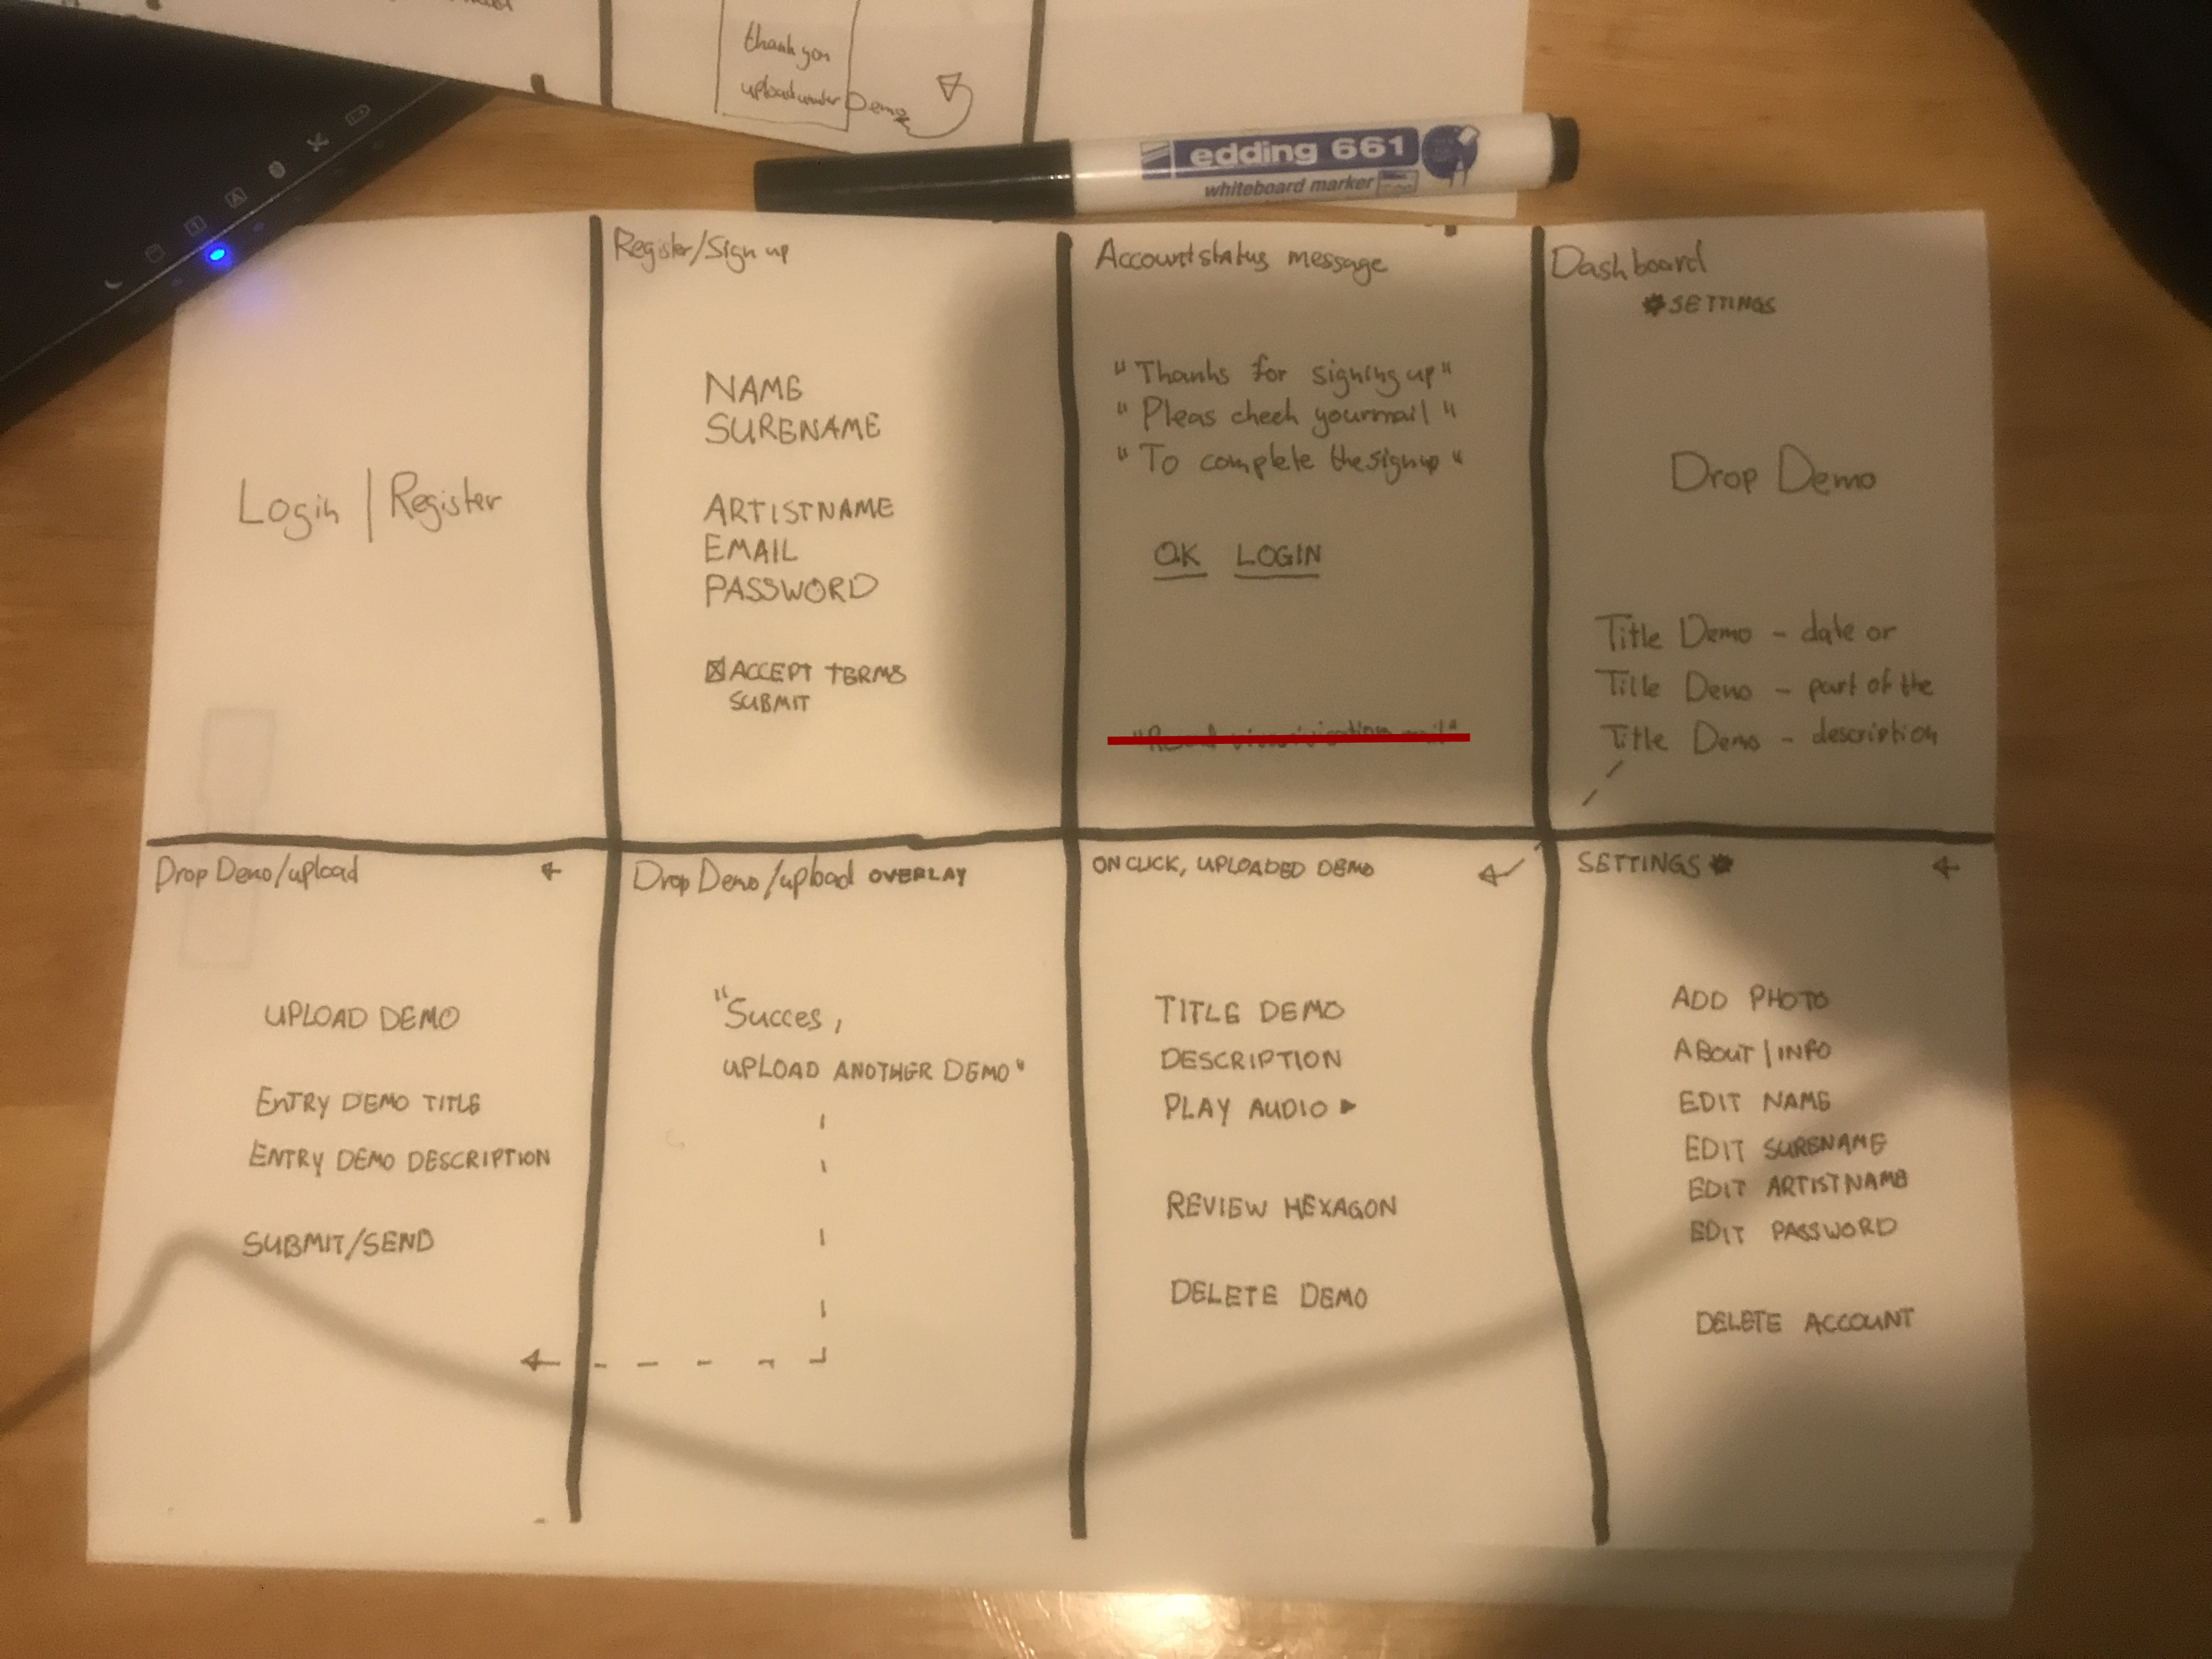 thank you
upload under Demo
edding 661
whiteboard marker
Login | Register
Register/Sign up
NAME
SURENAME
ARTISTNAME
EMAIL
PASSWORD
ACCEPT TERMS
SUBMIT
Account status message
"Thanks for signing up"
"Pleas check your mail"
"To complete the sign up"
OK LOGIN
Dashboard
SETTINGS
Drop Demo
Title Demo - date or
Title Demo - part of the
Title Demo - description
Drop Demo/upload
UPLOAD DEMO
ENTRY DEMO TITLE
ENTRY DEMO DESCRIPTION
SUBMIT/SEND
Drop Demo/upload OVERLAY
"Succes,
UPLOAD ANOTHER DEMO"
ON CLICK, UPLOADED DEMO
TITLE DEMO
DESCRIPTION
PLAY AUDIO
REVIEW HEXAGON
DELETE DEMO
SETTINGS
ADD PHOTO
ABOUT | INFO
EDIT NAME
EDIT SURENAME
EDIT ARTISTNAME
EDIT PASSWORD
DELETE ACCOUNT